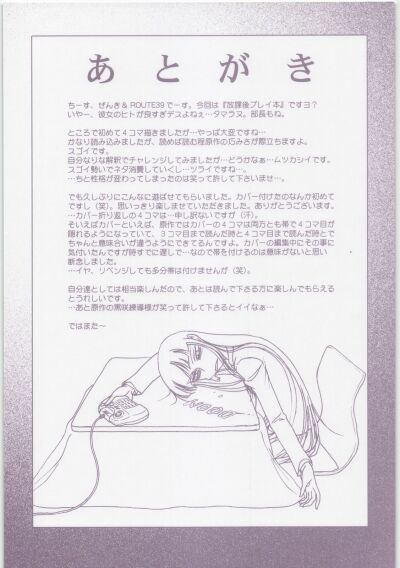 あとがき
ちーす、ぜんき& ROUTE39でーす。今回は『放課後プレイ本』ですヨ?
いやー、彼女のヒトが良すぎデスよねぇ…タマラヌ。部長もね。
ところで初めて4コマ描きましたが…やっぱ大変ですね…
かなり読み込みましたが、読めば読む程原作の巧みさが際立ちますよ。
スゴイです。
自分なりな解釈でチャレンジしてみましたが…どうかなぁ…ムツカシイです。
スゴイ勢いでネタ消費していくし…ツライですね…。
…ちと性格が変わってしまったのは笑って許して下さいませ…。
でも久しぶりにこんなに遊ばせてもらいました。カバー付けたのなんか初めて
ですし(笑)。思いっきり楽しませていただきました。ありがとうございます。
…カバー折り返しの4コマは…申し訳ないですが(汗)。
そいえばカバーといえば、原作ではカバーの4コマは両方とも帯で4コマ目が
隠れるようになっていて、3コマ目まで読んだ時と4コマ目まで読んだ時とで
ちゃんと意味合いが違うようにできてるんですよ。カバーの編集中にその事に
気付いたんですが時すでに遅しで…なので帯を付けるのは意味がないと思い
断念しました。
…イヤ、リベンジしても多分帯は付けませんが(笑)。
自分達としては相当楽しんだので、あとは読んで下さる方に楽しんでもらえる
とうれしいです。
…あと原作の黒咲練導様が笑って許して下さるとイイなぁ…
ではまた〜